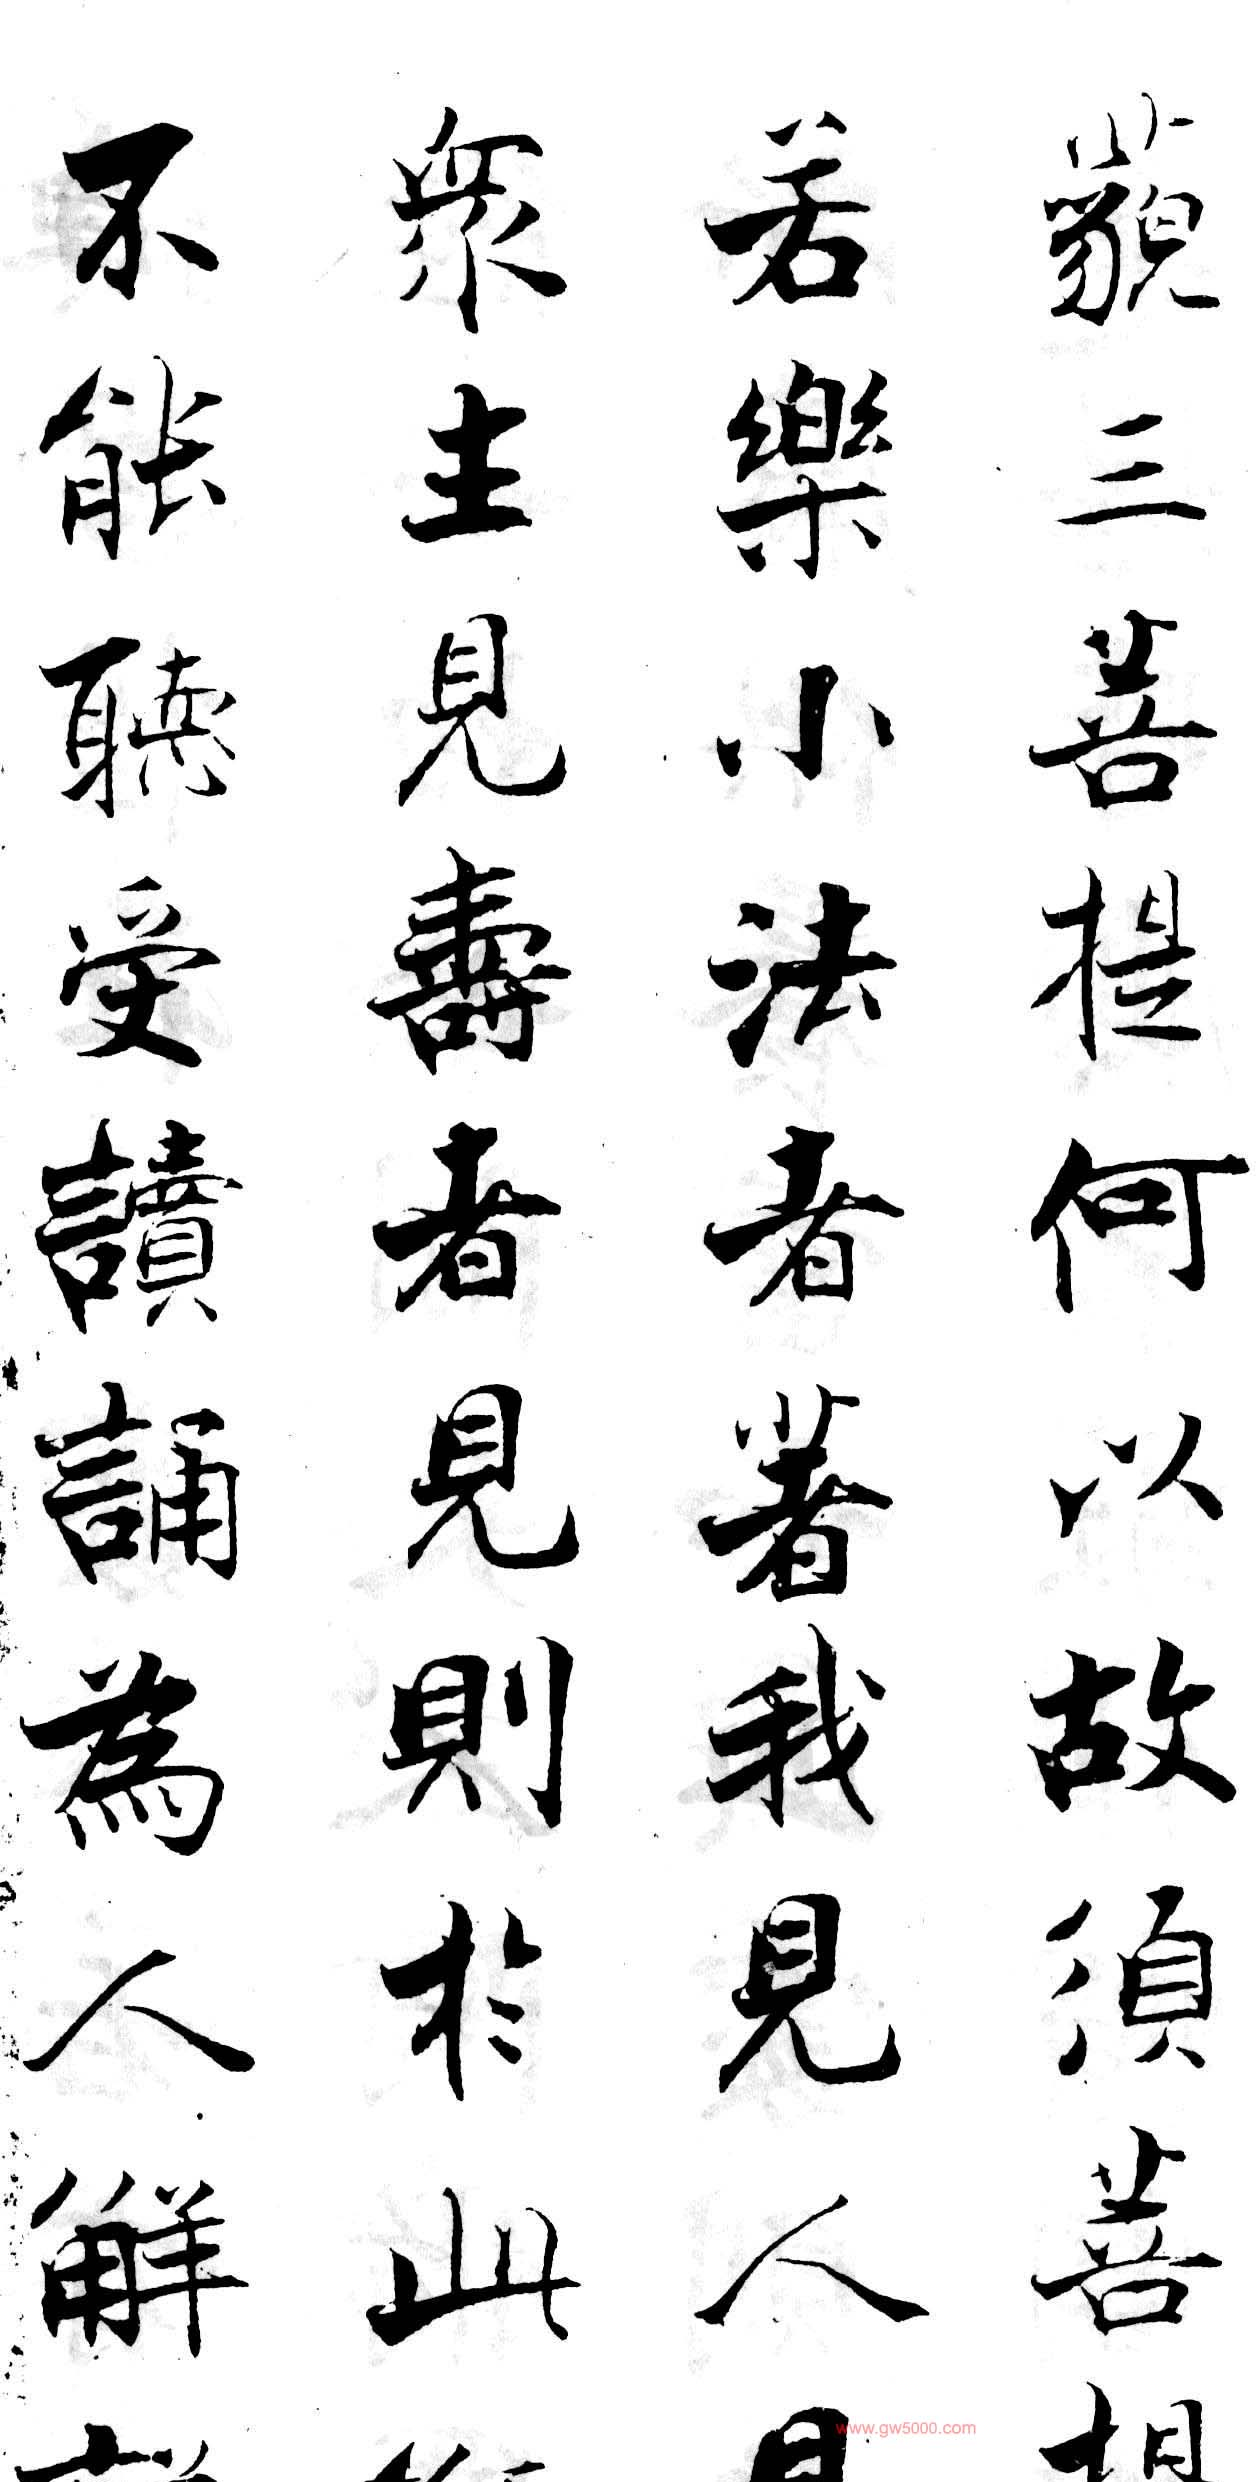 藐三菩提何以故須菩提
若樂小法者著我見人見
衆生見壽者見則於此
不能聽受讀誦為人解
www.gw5000.com